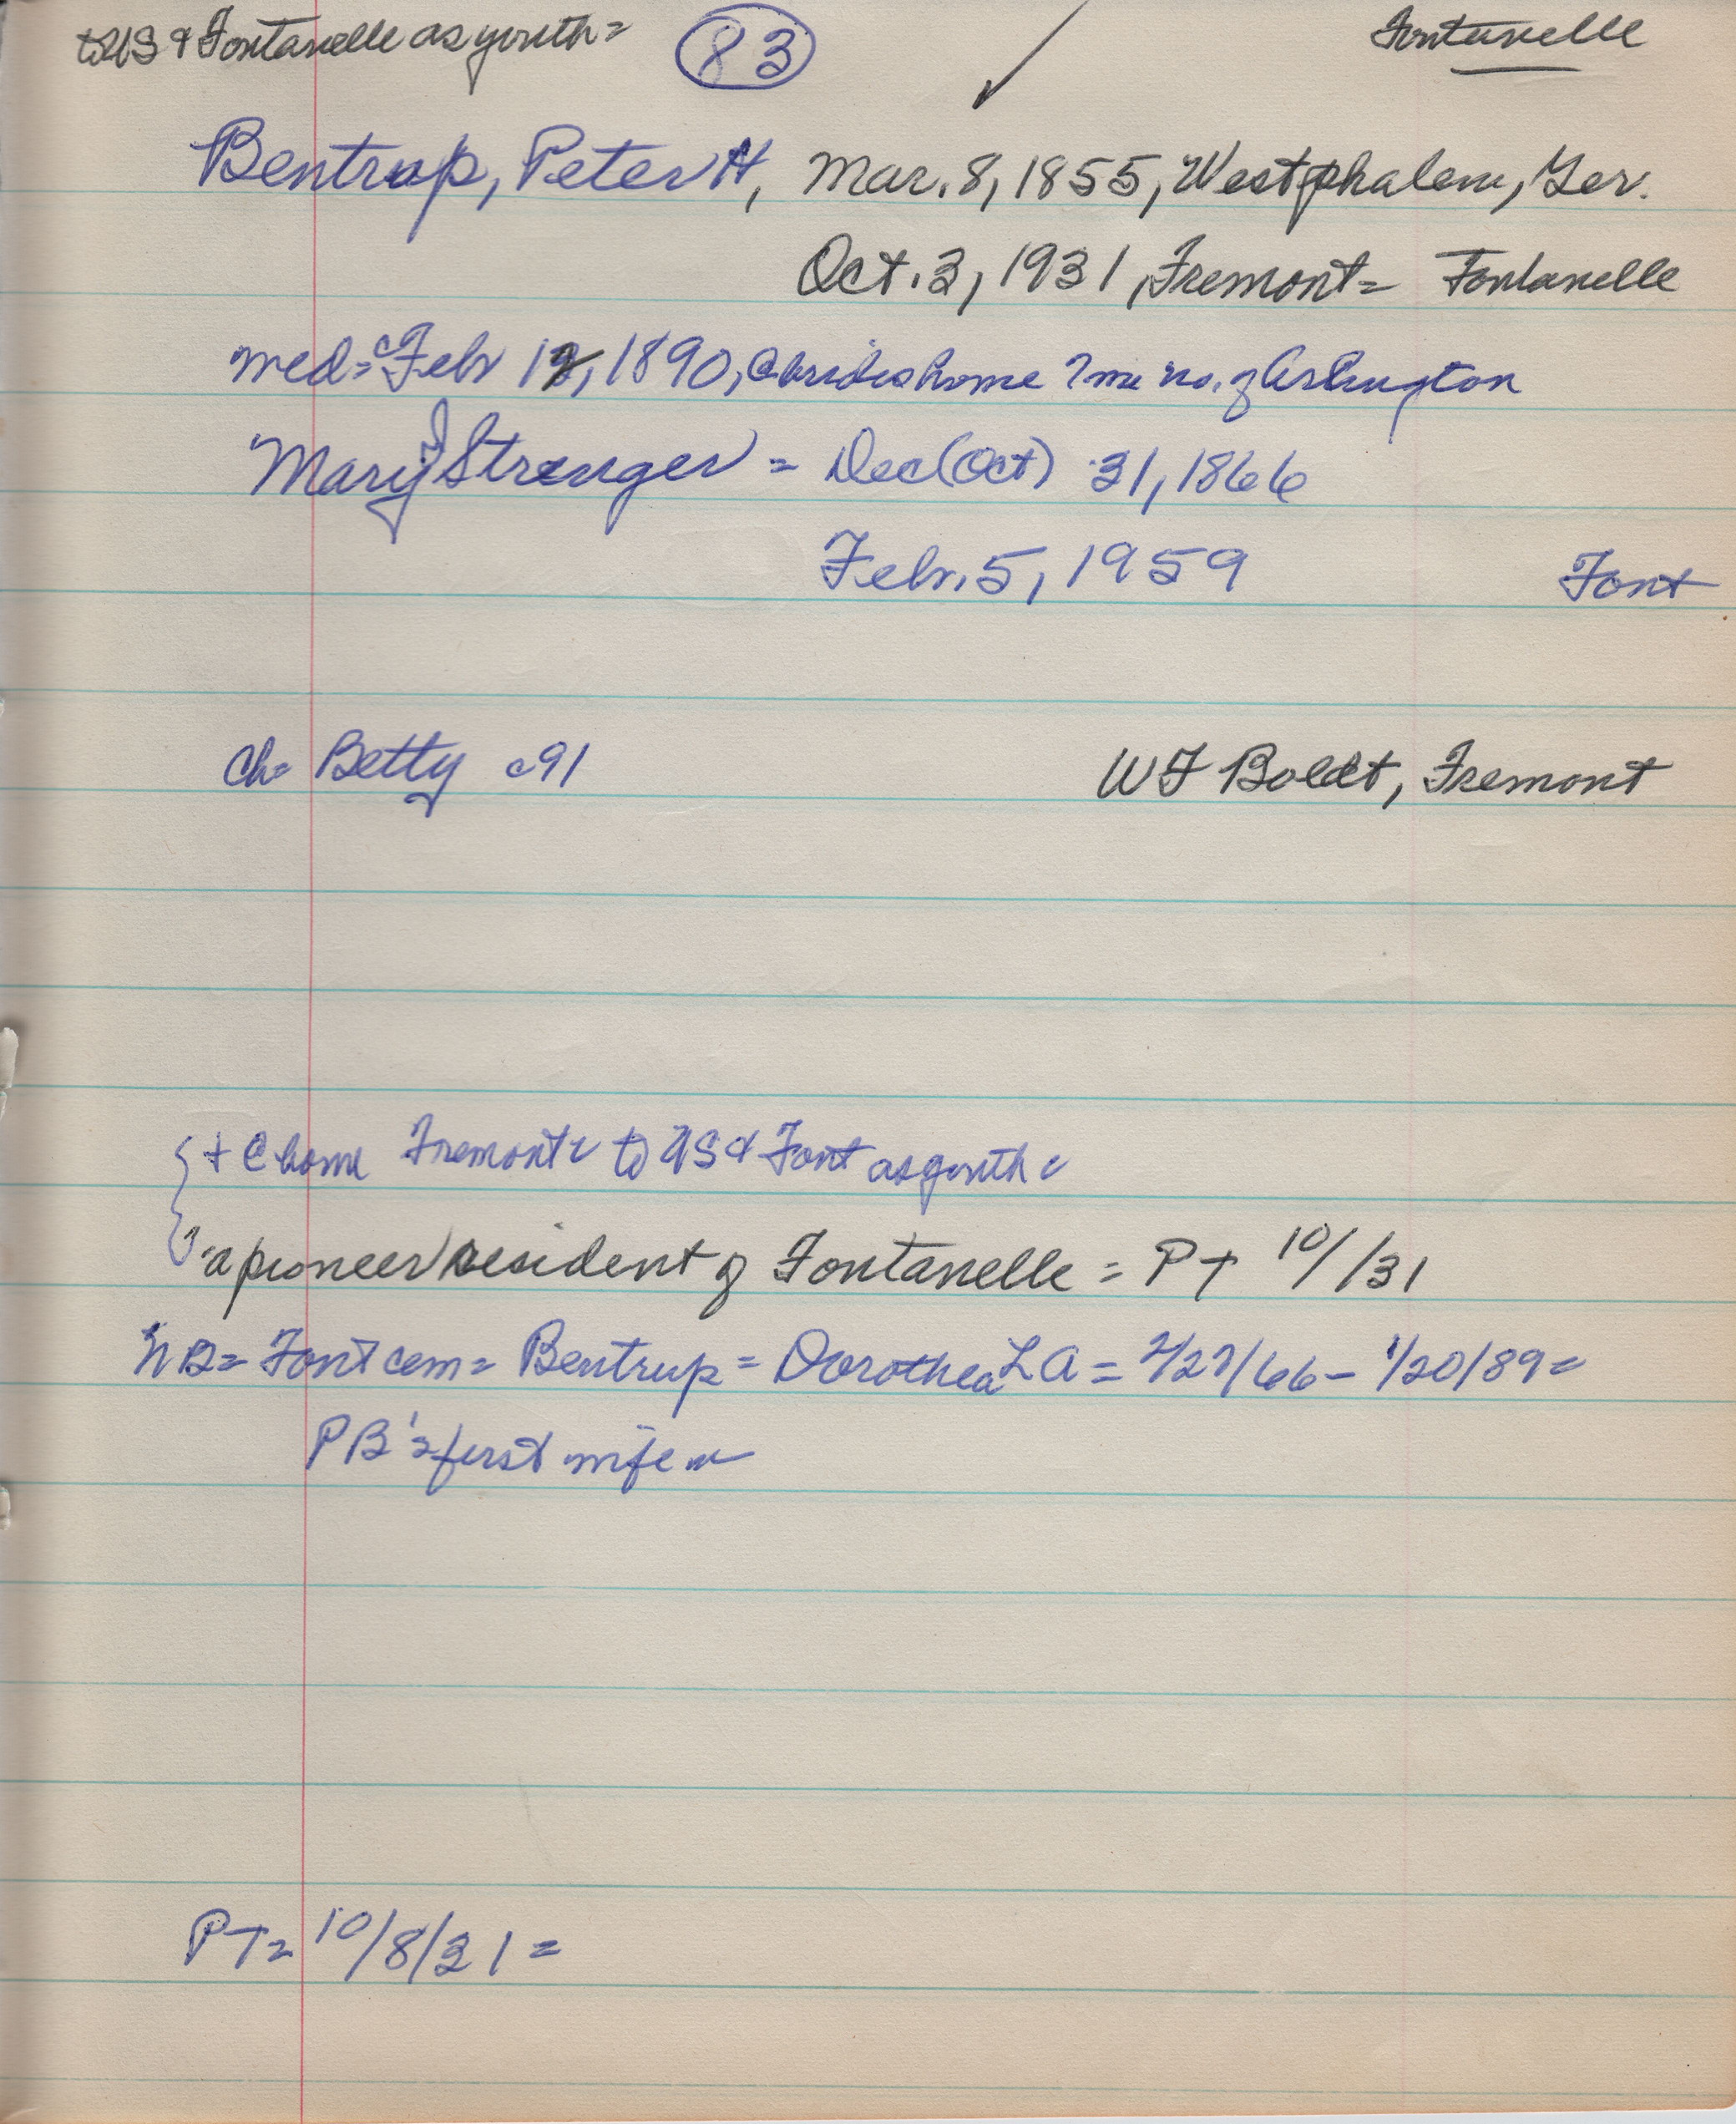 to US & Fontanelle as youth = 83 ✓ Fontanelle
Bentrup, Peter H, Mar. 8, 1855, Westphalen, Ger.
Oct. 3, 1931, Fremont = Fontanelle
med = c Feb 12, 1890, @ brides home 7 mi no. of Arlington
Mary J Strenger = Dec (Oct) 31, 1866
Feb. 5, 1959 Font
Ch = Betty c91 WF Boldt, Fremont
+ @ home Fremont = to US & Font as youth =
= a pioneer resident of Fontanelle = PT 10/ /31
NB = Font cem = Bentrup = Dorothea L A = 2/27/66 - 1/20/89 =
PB's first wife
PT = 10/8/31 =